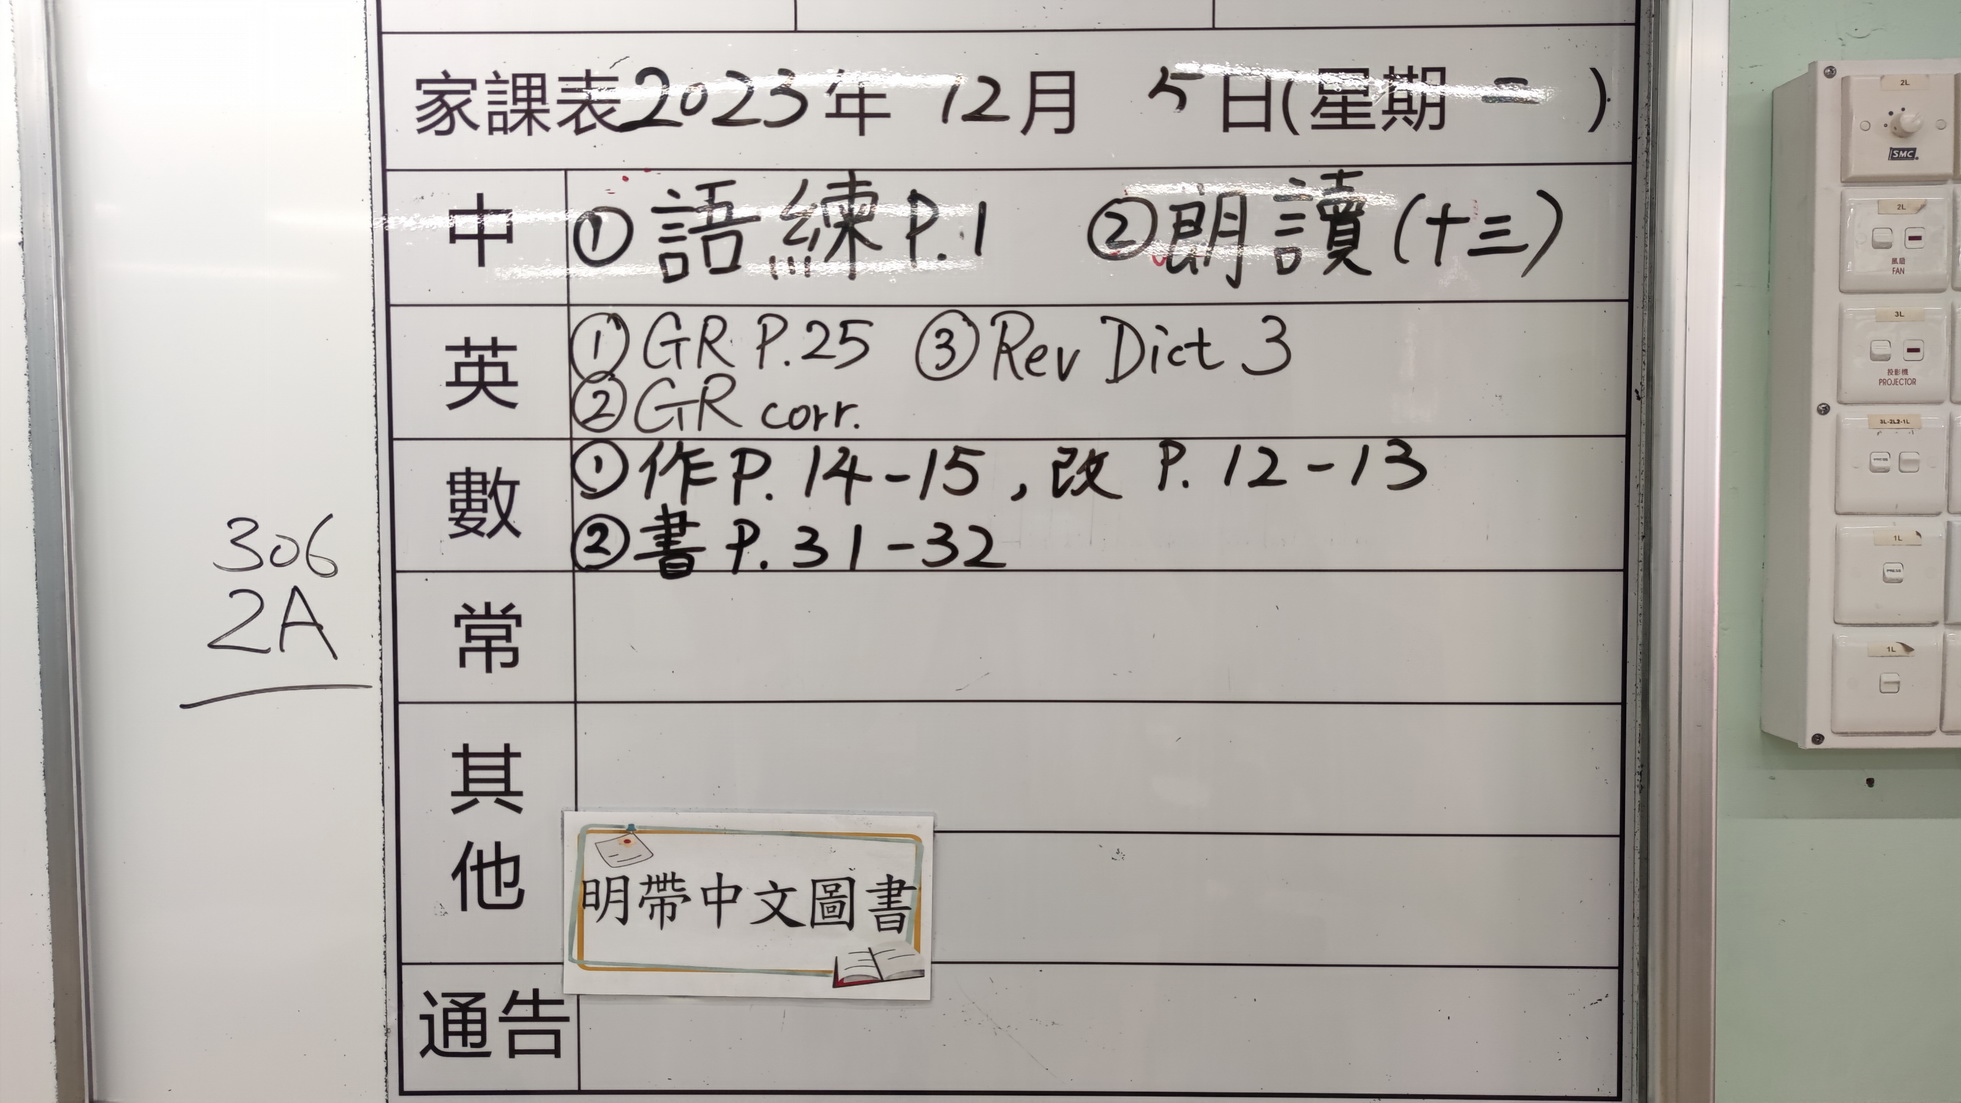 家課表2023年 12月 5日(星期 二 )
中 ①語練P.1 ②朗讀(十三)
英 ①GR P.25 ③Rev Dict 3
②GR corr.
數 ①作P.14-15,改 P.12-13
②書 P.31-32
306
2A
常
其他
明帶中文圖書
通告
2L
SMC
2L
風扇
FAN
3L
投影機
PROJECTOR
1L
1L